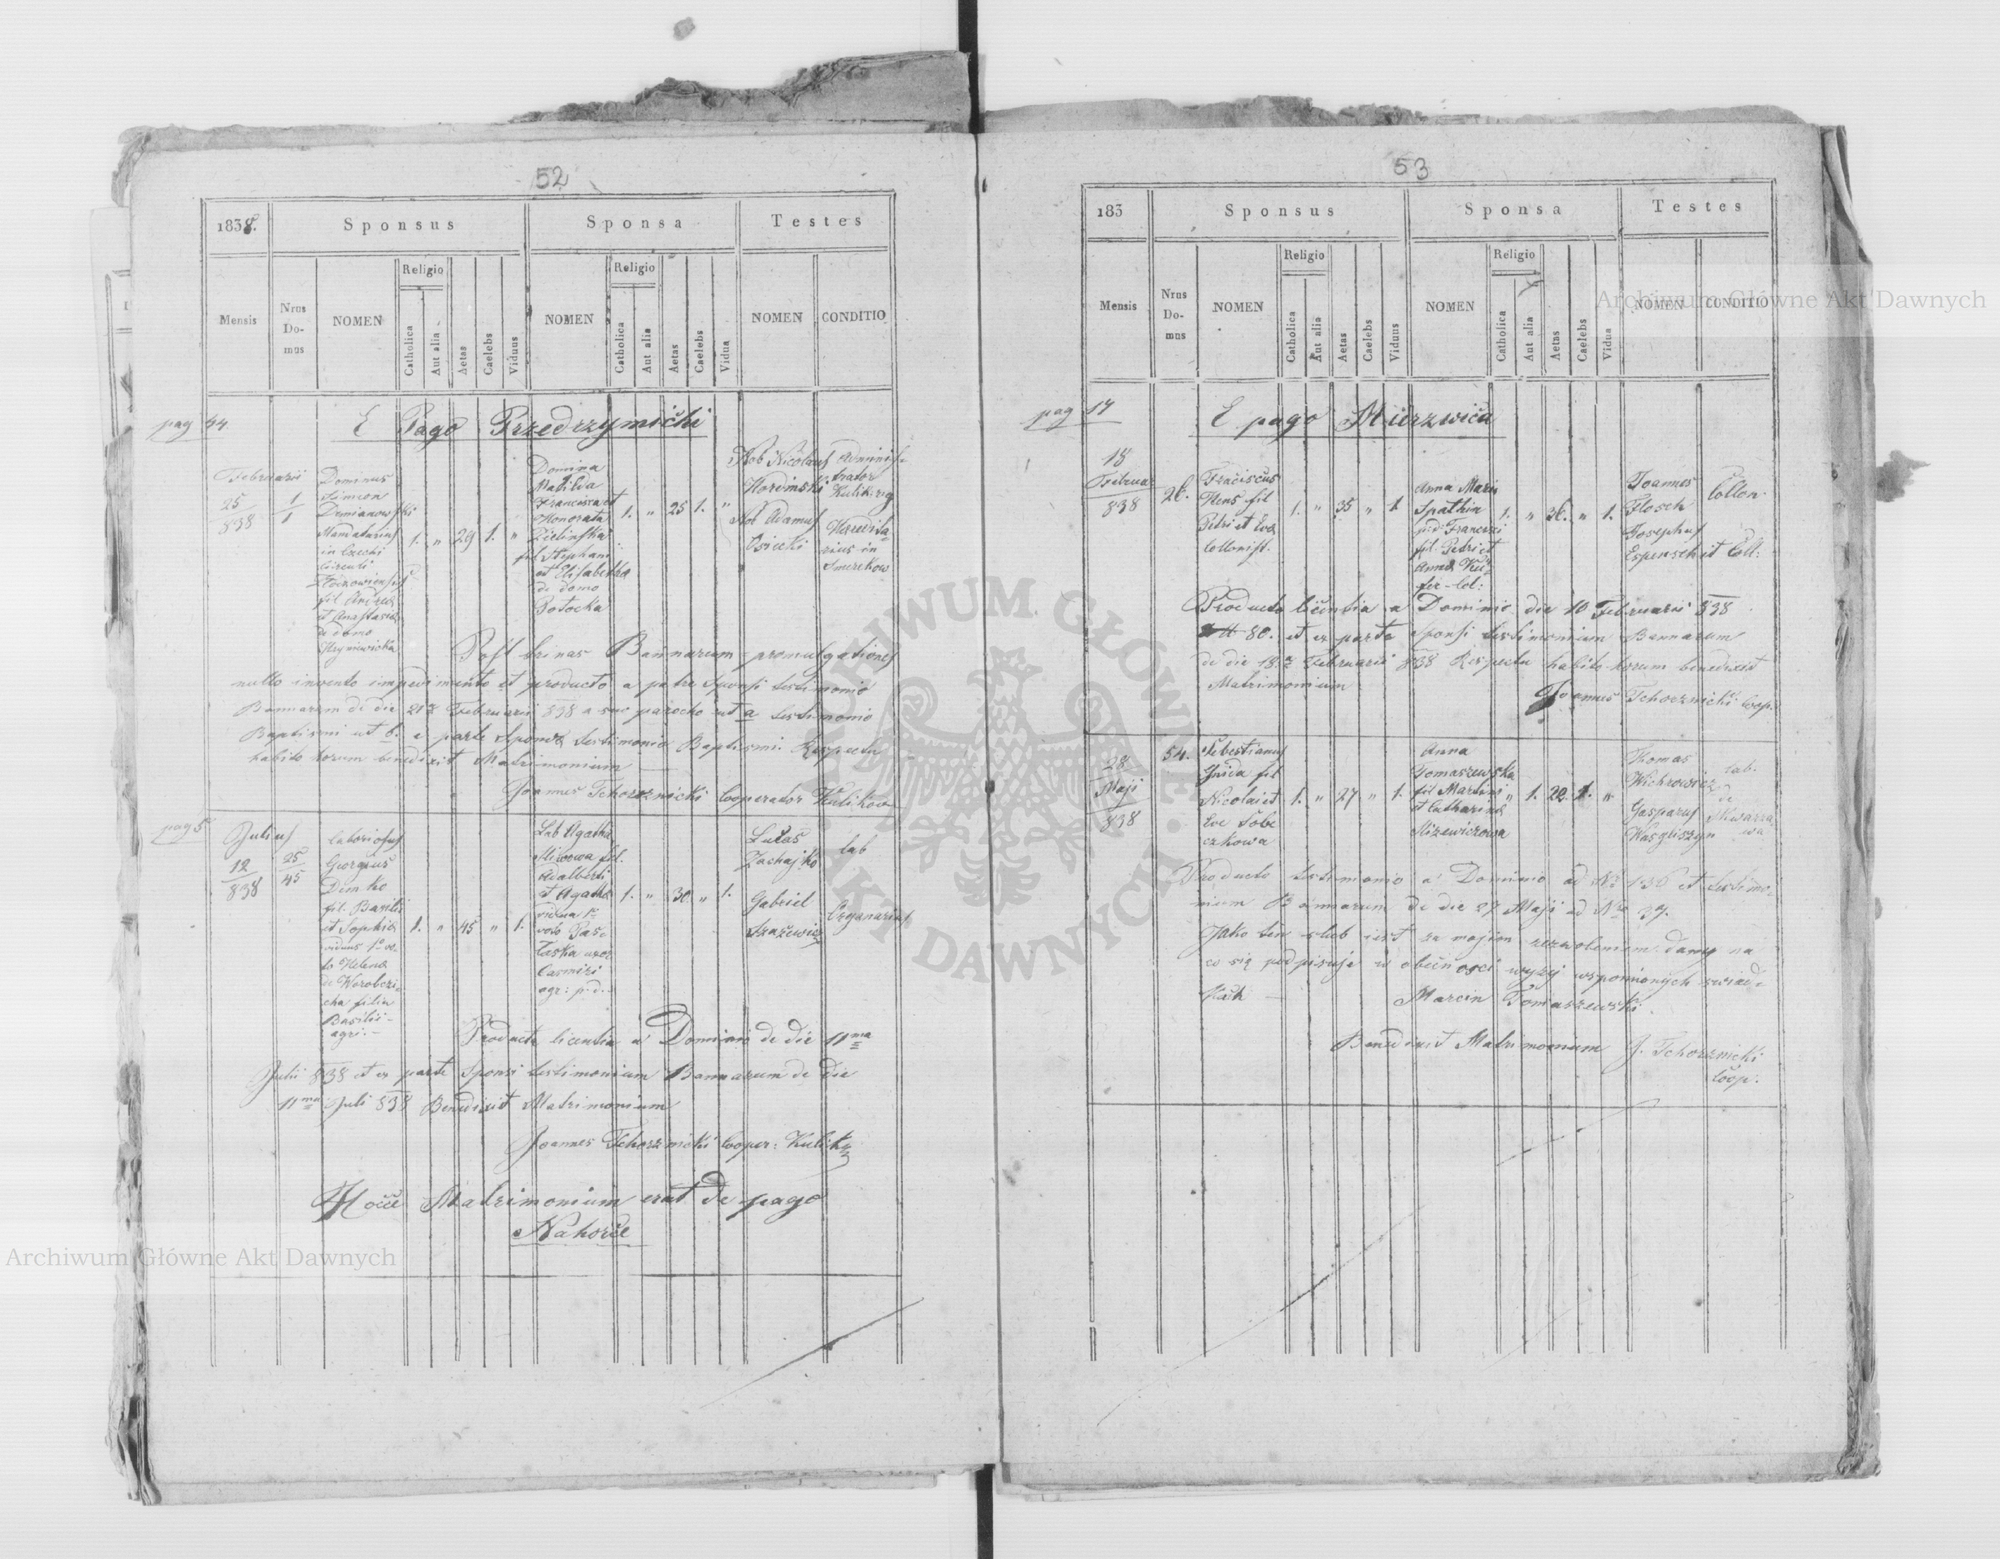 52
1838.
Sponsus
Sponsa
Testes
Mensis
Nrus
Do-
mus
NOMEN
Religio
Catholica
Aut alia
Aetas
Caelebs
Viduus
NOMEN
Religio
Catholica
Aut alia
Aetas
Caelebs
Vidua
NOMEN
CONDITIO
pag 44
E Pago Przedrzymichi
Februarii
25
838
1
1
Dominus
Simeon
Demianowski
Mandatarius
in
Circuli
Złoczowiensis
fil. Andreæ
et Anastasiæ
de domo
1. " 29 1. "
Domina
Matilda
Francisca et
Honorata
Zielinska
fil Stephani
et Elisabethæ
de domo
Potocka
1. " 25 1. "
Nob Nicolaus
Nob Adamus
Osiecki
Adminis-
trator
Heredita-
rius in
Smerekow
Post trinas Bannorum promulgationes
nullo invento impedimento et producto a patre Sponsi testimonio
Bannorum de die 21 Februarii 838 a suo parocho ut a testimonio
Baptismi ut b. e parte Sponsæ testimonio Baptismi Respectu
habito horum benedixit Matrimonium
Joannes Tchorznicki Cooperator Kulikow
pag 5
Julius
12
838
25
45
laboriosus
Georgius
Demko
fil. Basilii
et Sophiæ
viduus 1o vo
to Helena
de Worobczi-
cha filia
Basilii
agri:
1. " 45 " 1.
Lab Agatha
fil.
Adalberti
et Agatha
vidua 1o
voto
uxor
Casimiri
agr: p.d.
1. " 30 " 1.
Lucas
Zachajko
Gabriel
Szażewicz
lab
Organarius
Producta licentia a Dominio de die 11ma
Julii 838 et ex parte Sponsi testimonium Bannorum de die
11ma Juli 838 Benedixit Matrimonium
Joannes Tchorznicki Cooper: Kulik
Hocce Matrimonium erat de pago
Nahorce
53
183
Sponsus
Sponsa
Testes
Mensis
Nrus
Do-
mus
NOMEN
Religio
Catholica
Aut alia
Aetas
Caelebs
Viduus
NOMEN
Religio
Catholica
Aut alia
Aetas
Caelebs
Vidua
NOMEN
CONDITIO
pag 17
E pago Mierzwica
18
Februar
838
26.
Fraciscus
Hens fil
Petri et Eva
Collonist.
1. " 35 " 1.
Anna Maria
Spathin
fil. Petri et
Anna
fer - Col:
1. " 36. " 1.
Joannes
Flosch
Josephus
Esperschet
Collon.
Coll:
Producta licentia a Dominio die 10 Februarii 838
80. et ex parte Sponsi testimonium Bannorum
de die 18. Februarii 838 Respectu habito horum benedixit
Matrimonium
Joannes Tchorznicki Coop.
28
Maji
838
54.
Sebestianus
Gnida fil
Nicolai et
Eve Sobe
czkowa
1. " 27 " 1.
Anna
Tomaszewska
fil Martini
et Catharinæ
Niżewiczowa
" 1. 22. 1. "
Thomas
Wichrowicz
Gasparus
lab.
de
Producto testimonio a Dominio ad No 136 et testimo-
nium Bannorum de die 27 Maji ad Nro 37.
Jako ten slub jest za mojem zezwoleniem dany na
co się podpisuje w obecnosci wyżej wspomionych swiad-
kach
Marcin Tomaszewski
Benedixit Matrimonium J. Tchorznicki
Coop.
Archiwum Główne Akt Dawnych
Archiwum Główne Akt Dawnych
ARCHIWUM GŁÓWNE AKT DAWNYCH